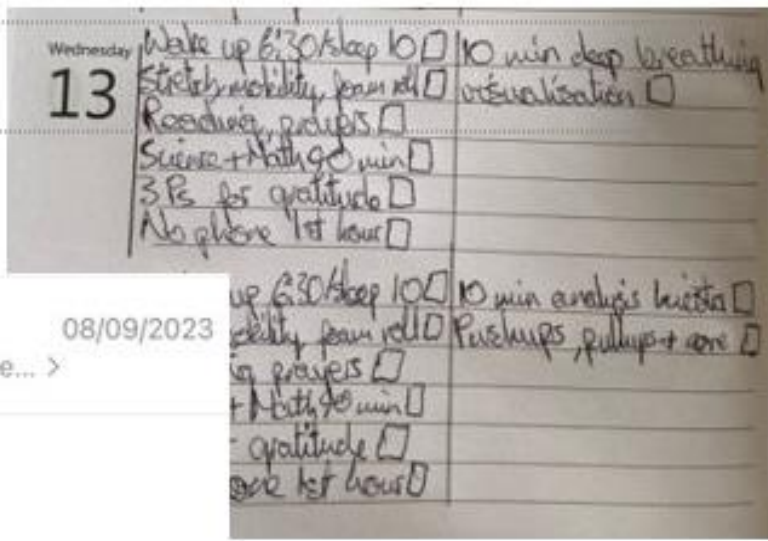 Wednesday
13
Wake up 6:30/sleep 10
Stretch, mobility, foam roll
Reading, prayers
Science + Math 90 min
3 Ps for gratitude
No phone 1st hour
10 min deep breathing
visualisation
08/09/2023
e... >
up 6:30/sleep 10
mobility foam roll
prayers
+ Math 90 min
gratitude
1st hour
10 min analysis
Pushups, pullups + core